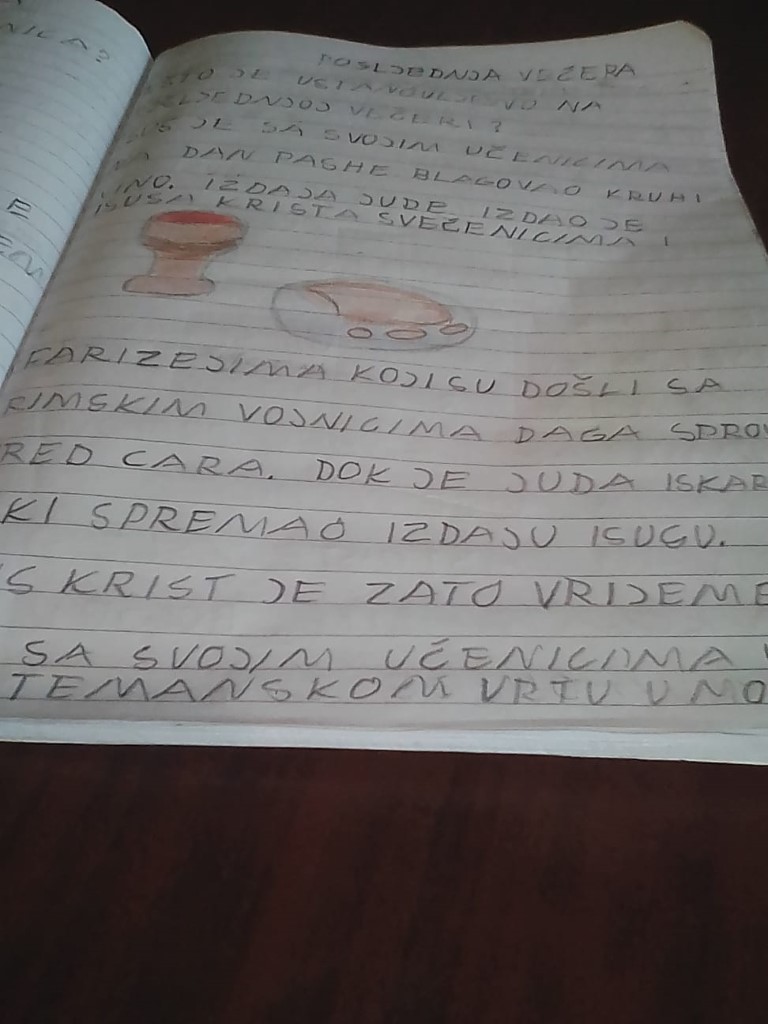 POSLJEDNJA VEČERA
JE USTANOVLJENO NA
VEČERI?
JE SA SVOJIM UČENICIMA
DAN PASHE BLAGOVAO KRUH I
IZDAJA JUDE. IZDAO JE
ISUSA KRISTA SVEĆENICIMA I
FARIZEJIMA KOJI SU DOŠLI SA
RIMSKIM VOJNICIMA DAGA SPRO
RED CARA. DOK JE JUDA ISKAR
KI SPREMAO IZDAJU ISUSU.
S KRIST JE ZATO VRIJEME
SA SVOJIM UČENICIMA
TEMANSKOM VRTU U MO
E